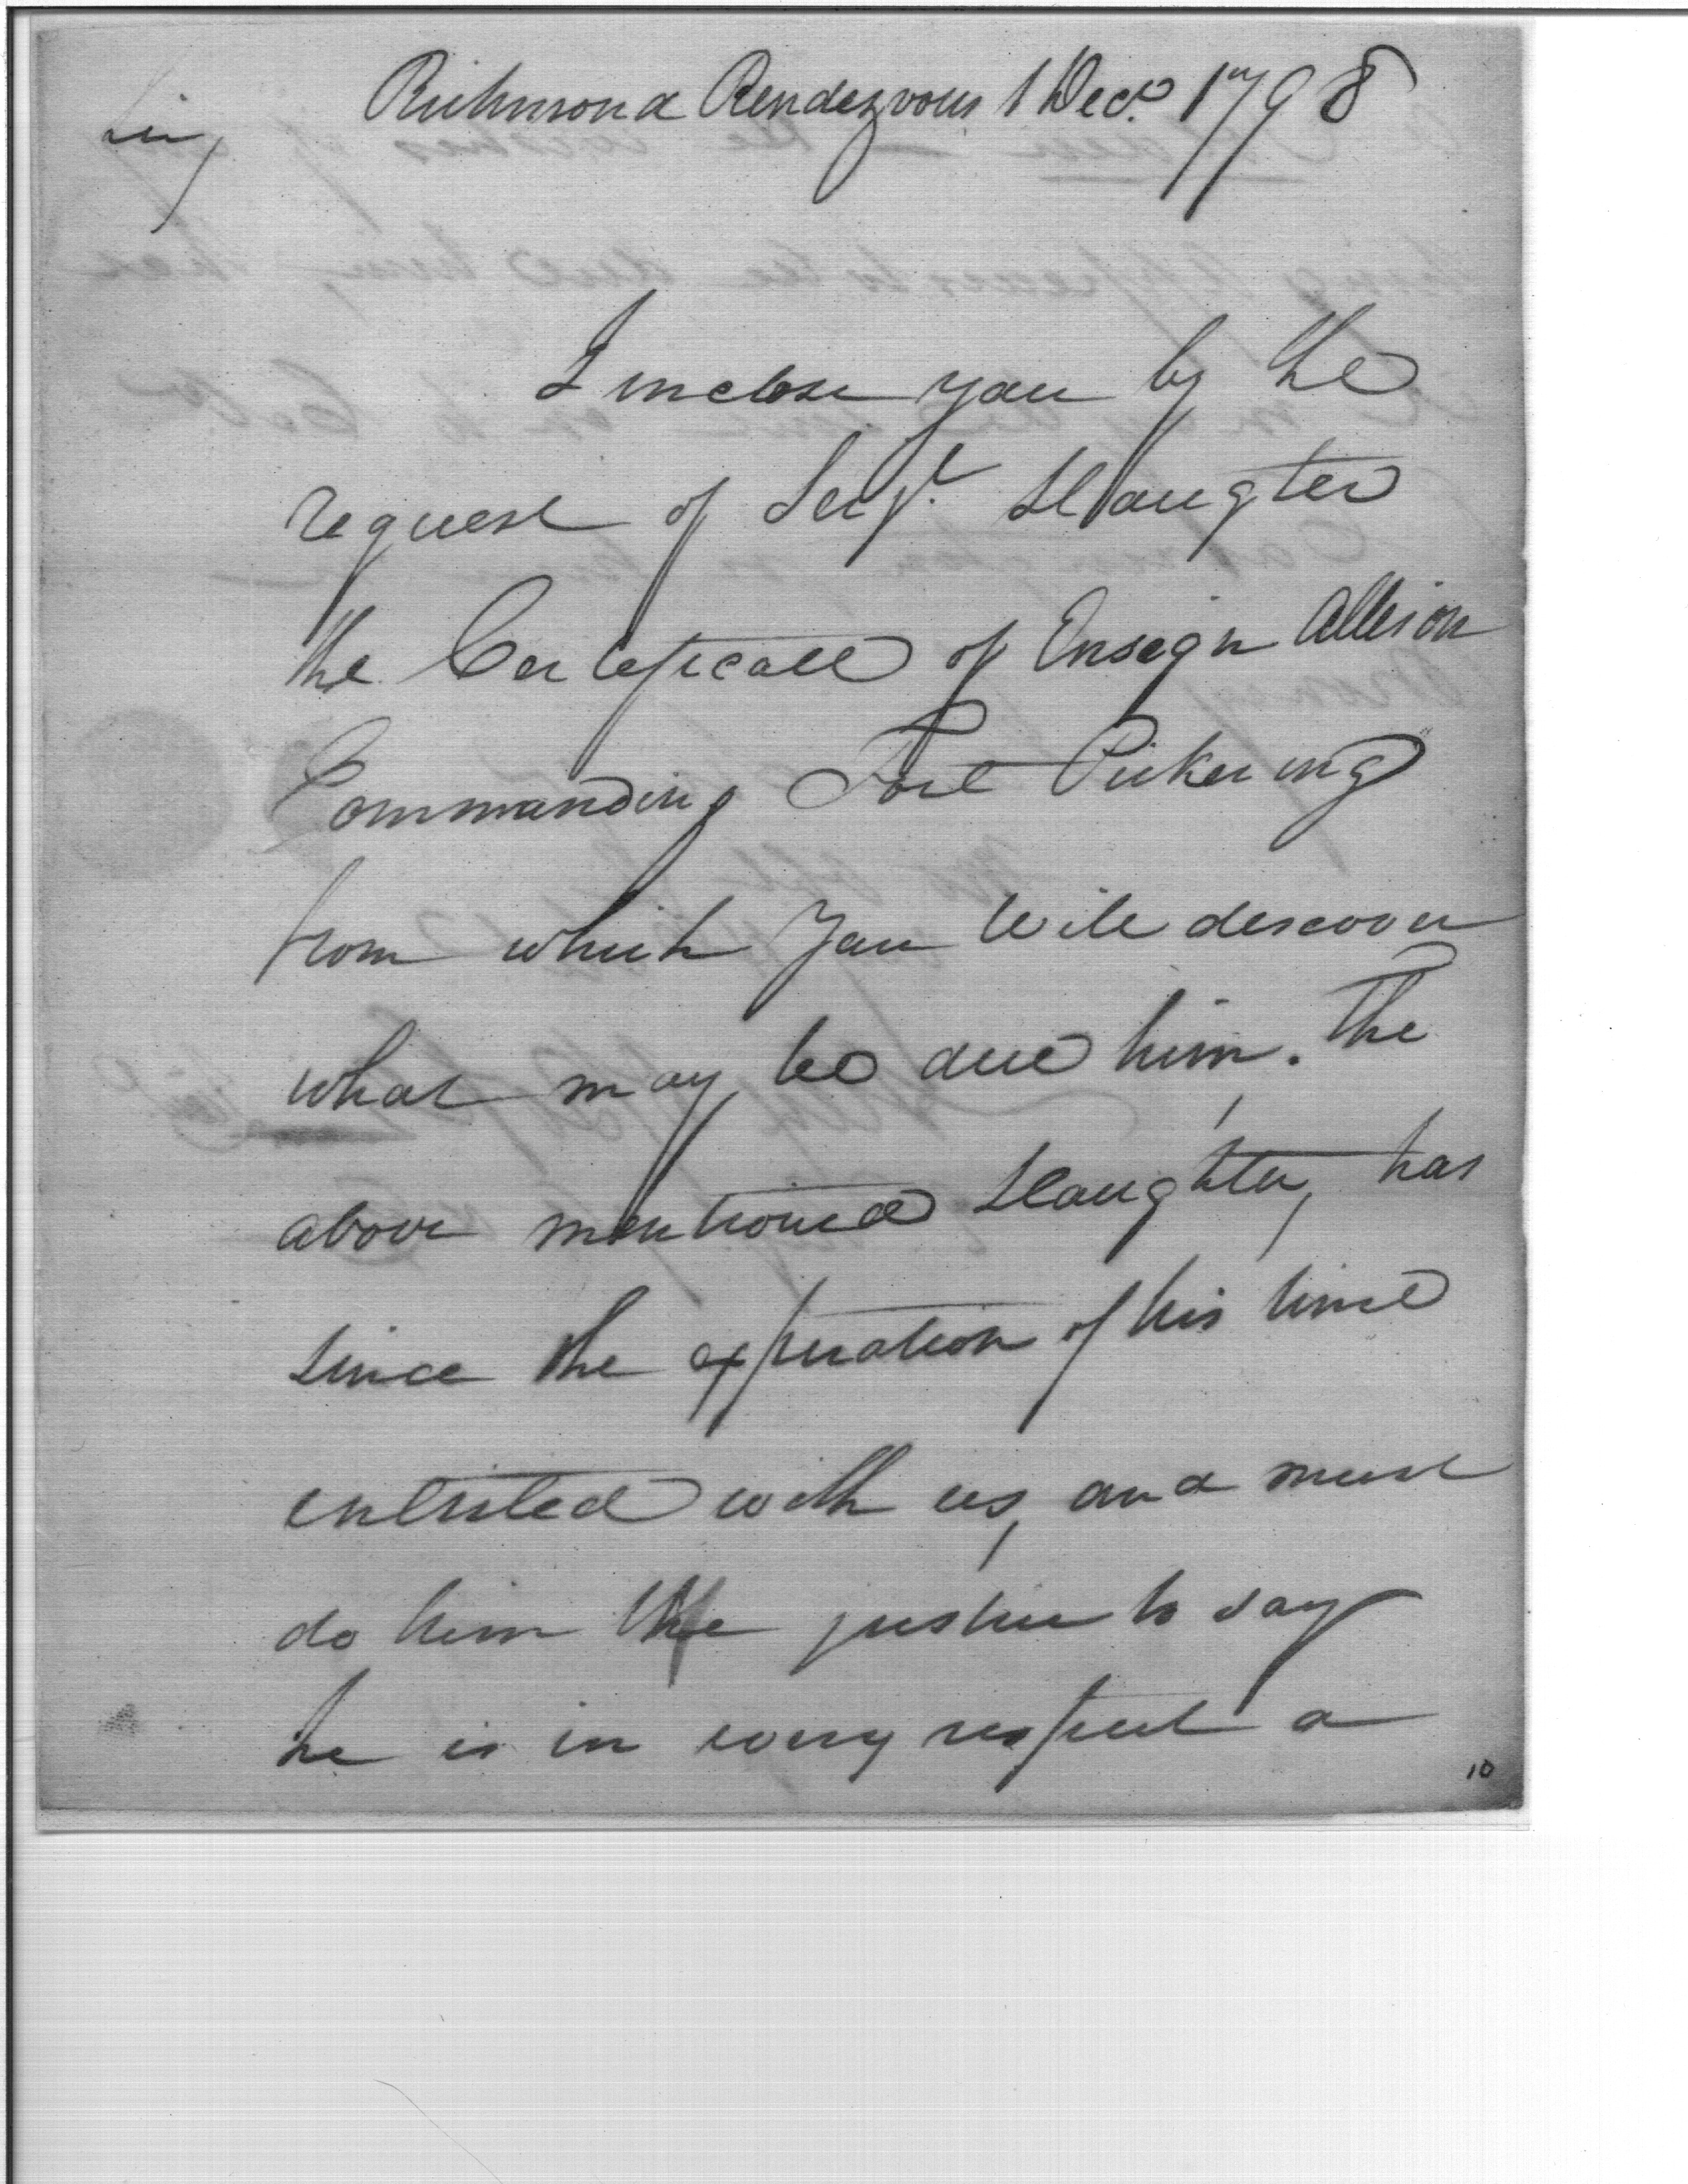 Richmond Rendezvous 1 Decr. 1798
Sir,
I inclose you by the
request of Serjt. Slaugter
the Certificate of Ensign Allison
Commanding Fort Pickering
from which you will discover
what may be due him. The
above mentioned Slaughter, has
since the expiration of his time
enlisted with us, and must
do him the justice to say
he is in every respect a
10